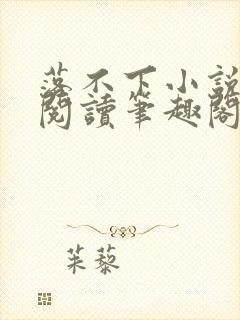 落不下小說
閱讀筆趣閣
茱藜